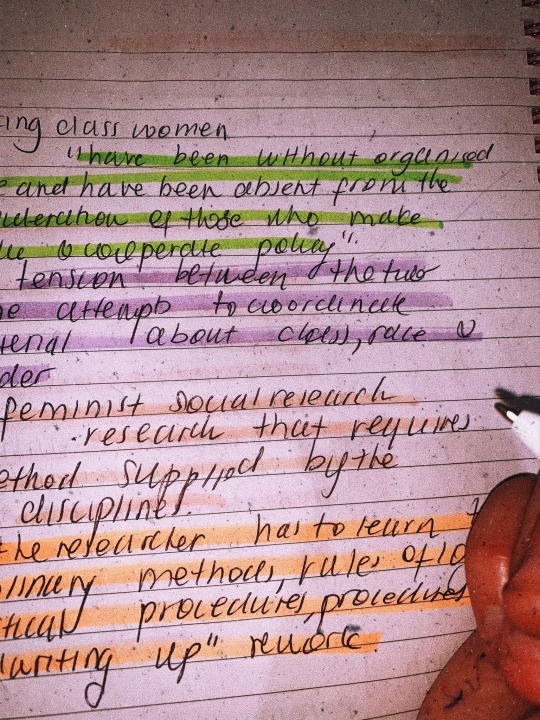 ing class women
"have been without organised
and have been absent from the
ideration of those who make
& cooperate policy".
tension between the two
attempts to coordinate
erial about class, race &
der
feminist social research
research that requires
ethod supplied by the
discipline.
the researcher has to learn
linary methods, rules of lo
tical procedures, procedures
writing up" rework.